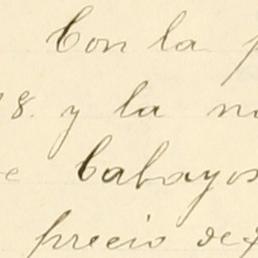 Con la p
8. y la no
e Cabayos
precio de